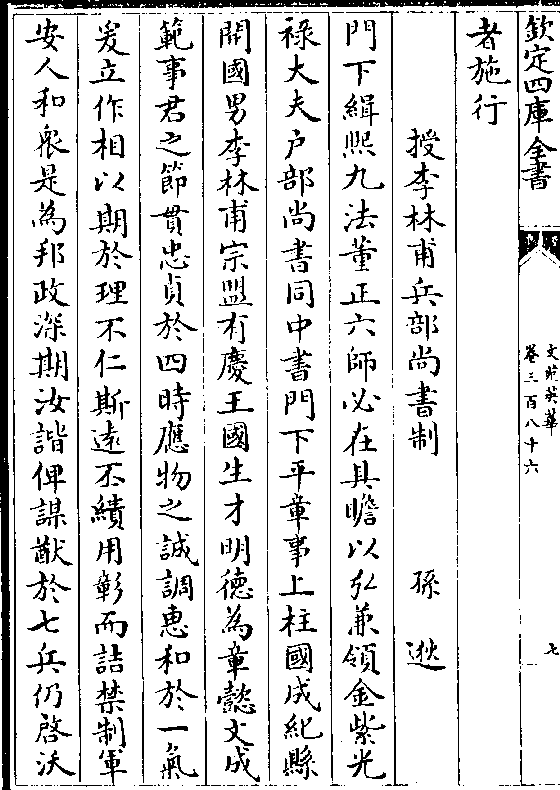 欽定四庫全書
文苑英華
卷三百八十六
七
者施行
授李林甫兵部尚書制
孫逖
門下緝熙九法董正六師必在具瞻以弘兼領金紫光
祿大夫户部尚書同中書門下平章事上柱國成紀縣
開國男李林甫宗盟有慶王國生才明德為章懿文成
範事君之節貫忠貞於四時應物之誠調惠和於一氣
爰立作相以期於理不仁斯遠丕績用彰而詰禁制軍
安人和衆是為邦政深期汝諧俾謀猷於七兵仍啓沃